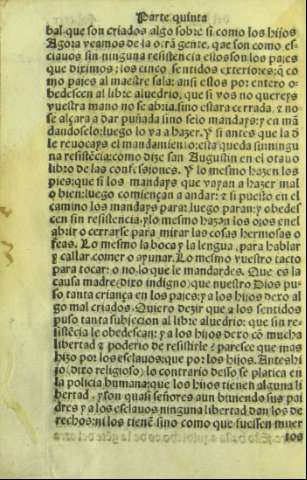 Parte quinta
bal que son criados algo sobre si como los hijos
Agora veamos de la otra gente, que son como es-
clauos sin ninguna resistencia ellos son los pajes
que diximos; los cinco sentidos exteriores: q̃ co
mo pajes al maestre sala: ansi ellos por entero o-
bedescen al libre aluedrio, que si vos no quereys
vuestra mano no se abrira, sino estara cerrada, y no
se alçara a dar puñada sino selo mandays: y en mã
dandoselo: luego lo va a hazer. Y si antes que la dẽ
le reuocays el mandamiento: esta queda sin ningu
na resistẽcia: como dize san Augustin en el otauo
libro de las confessiones. Y lo mesmo hazen los
pies: que si los mandays que vayan a hazer mal
o bien: luego comiençan a andar: z si puesto en el
camino los mandays para: luego paran: y obedes
cen sin resistencia: y lo mesmo hazen los ojos en el
abrir o cerrarse para mirar las cosas hermosas o
feas. Lo mesmo la boca y la lengua, para hablar
y callar, comer o ayunar. Lo mesmo vuestro tacto
para tocar: o no, lo que le mandardes. Que es la
causa madre (dixo indigno) que nuestro Dios pu-
so tanta criança en los pajes: y a los hijos dexo al
go mal criados. Quiero dezir que a los sentidos
puso tanta subjecion al libre aluedrio: que sin re-
sistẽcia le obedescan: y a los hijos dexo cõ mucha
libertad y poderio de resistirle: paresce que mas
hizo por los esclauos: que por los hijos. Antes hi
jo (dixo religioso) lo contrario desso se platica en
la policia humana: que los hijos tienen alguna li
bertad, y son quasi señores aun biuiendo sus pa
dres y a los esclauos ninguna libertad dan los de
rechos: ni los tienẽ sino como que fuessen muer
tos